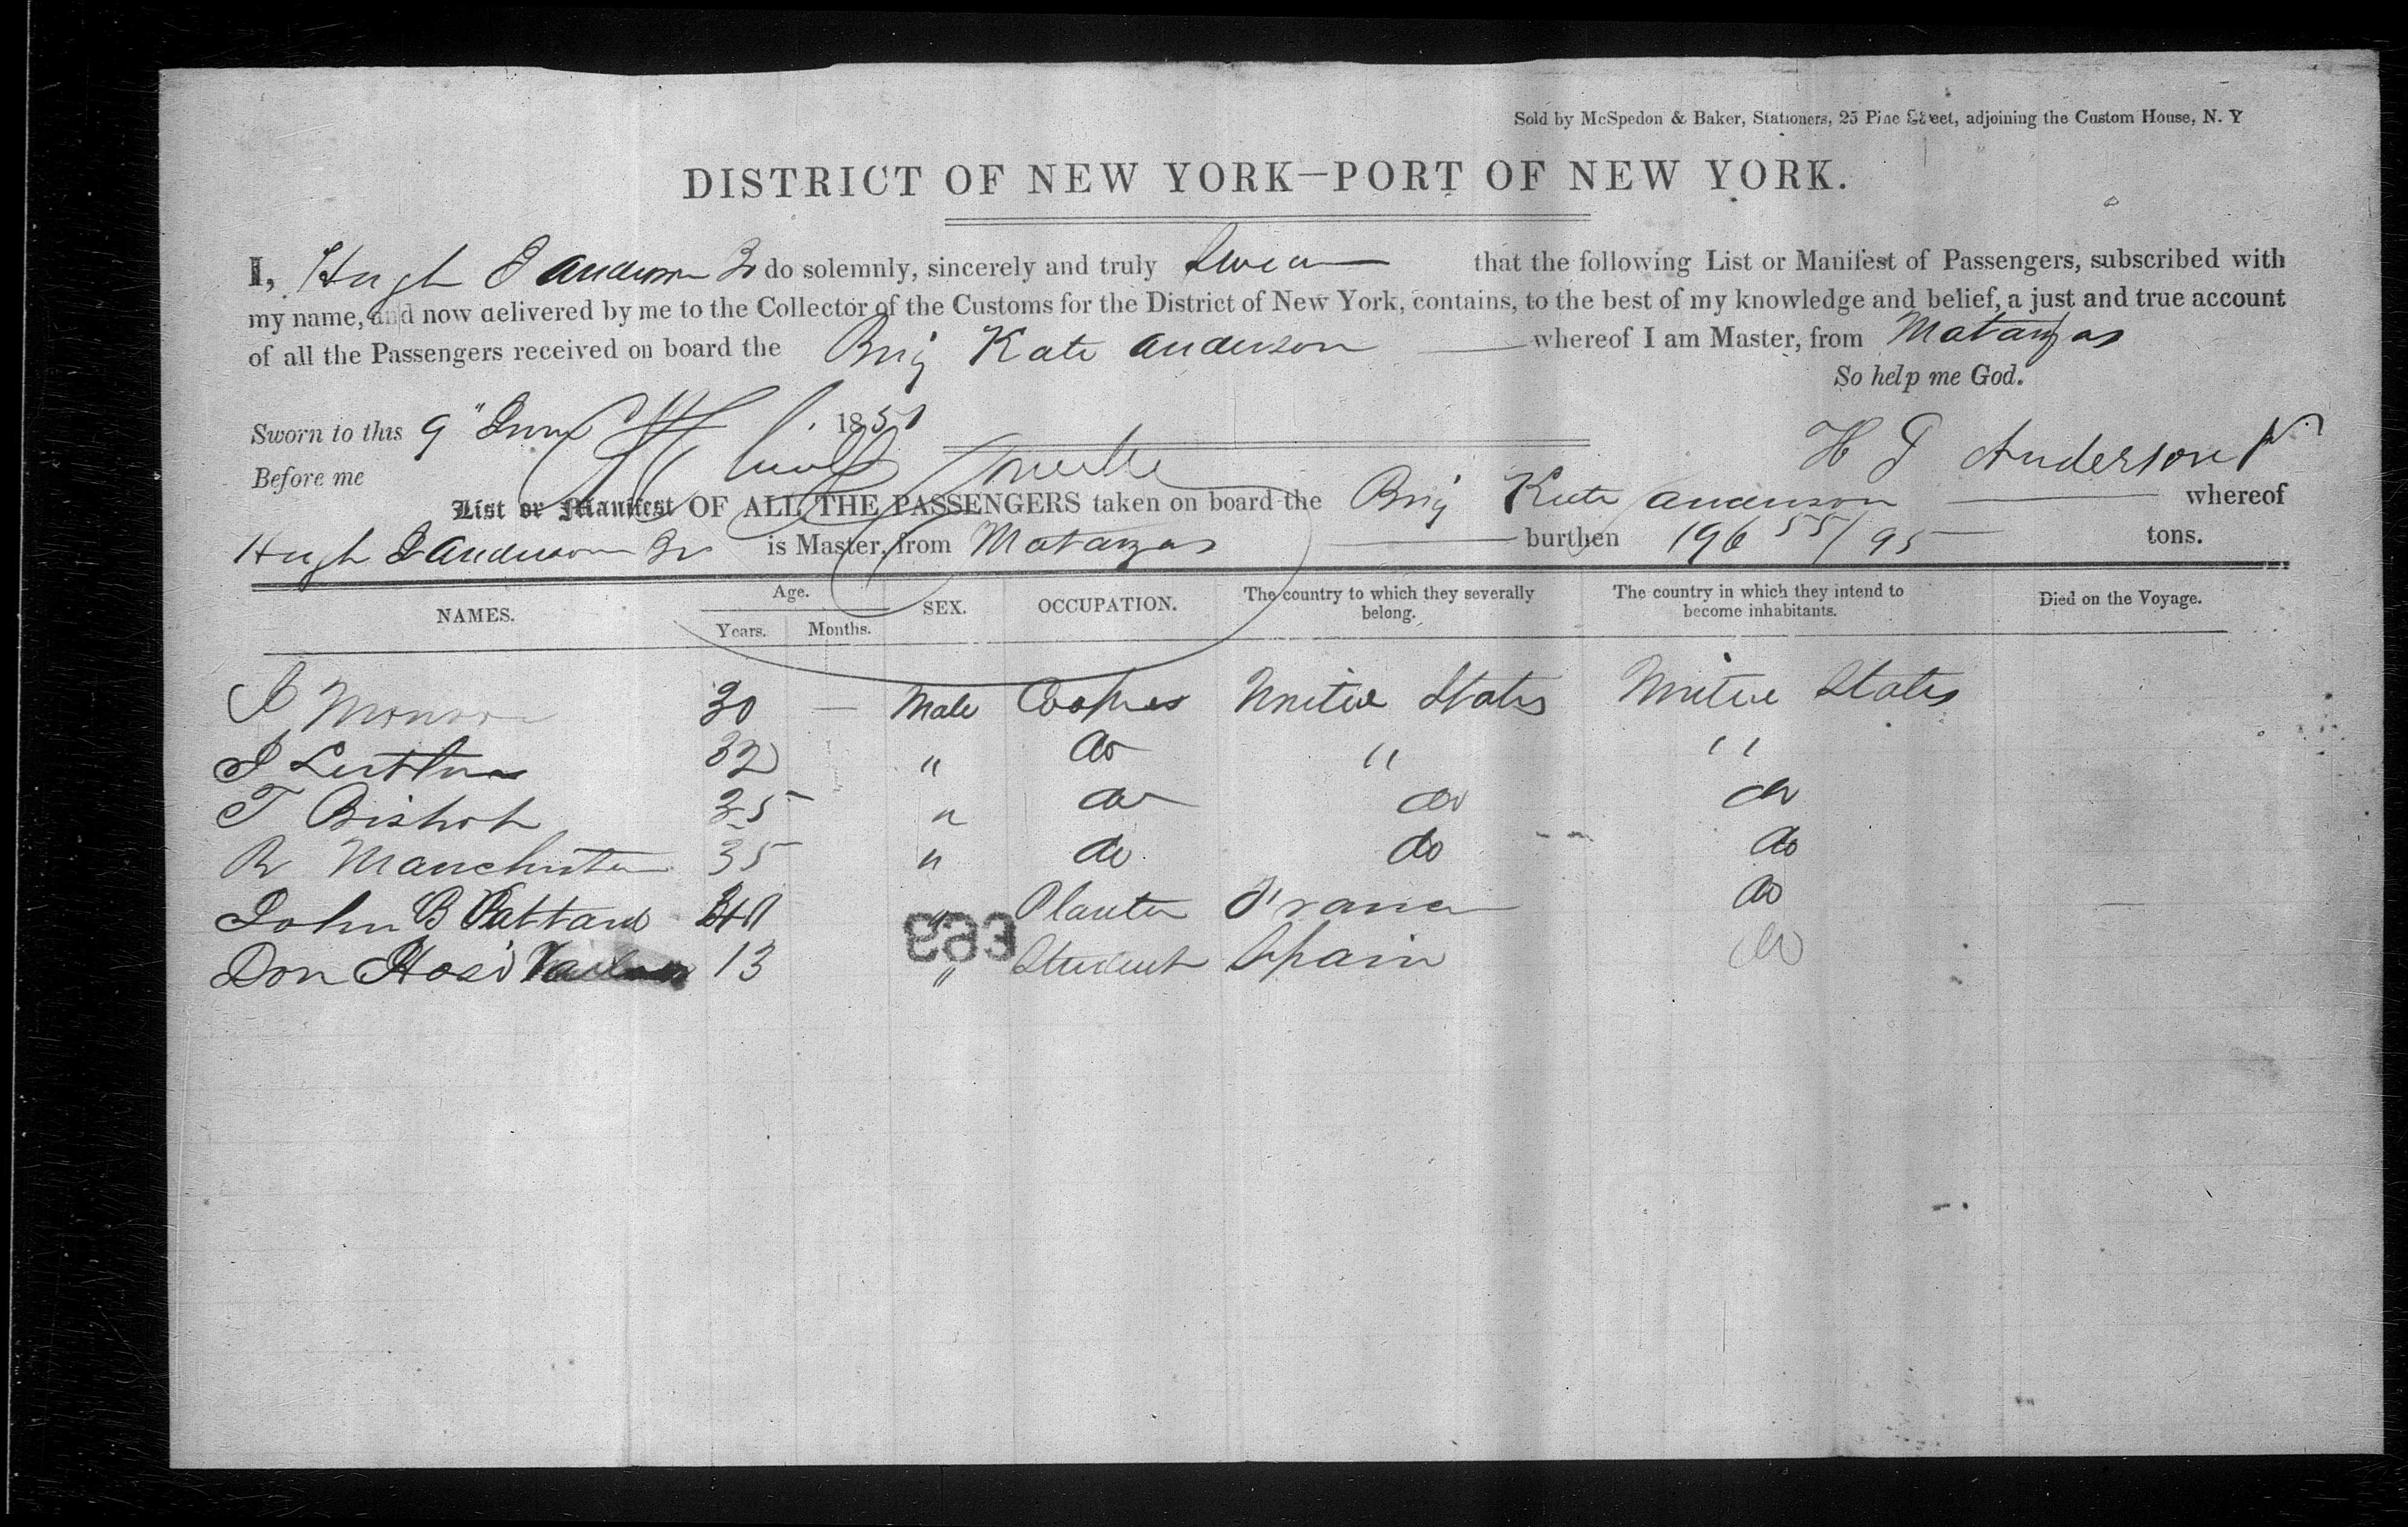 Sold by McSpedon & Baker, Stationers, 25 Pine Street, adjoining the Custom House, N. Y
DISTRICT OF NEW YORK—PORT OF NEW YORK.
I, Hugh Anderson Jr do solemnly, sincerely and truly Swear that the following List or Manifest of Passengers, subscribed with
my name, and now delivered by me to the Collector of the Customs for the District of New York, contains, to the best of my knowledge and belief, a just and true account
of all the Passengers received on board the Brig Kate Anderson whereof I am Master, from Matanzas
So help me God.
Sworn to this 9" June 1851
H Anderson Jr
Before me
List or Manifest OF ALL THE PASSENGERS taken on board the Brig Kate Anderson whereof
Hugh Anderson Jr is Master, from Matanzas burthen 196 55/95 tons.
NAMES. Age. Years. Months. SEX. OCCUPATION. The country to which they severally belong. The country in which they intend to become inhabitants. Died on the Voyage.
Monroe 30 — Male Coopers United States United States
32 " do " "
T Bishop 35 " do do do
R Manchester 35 " do do do
John B 40 " Planter France do
Don 13 " Student Spain do
693